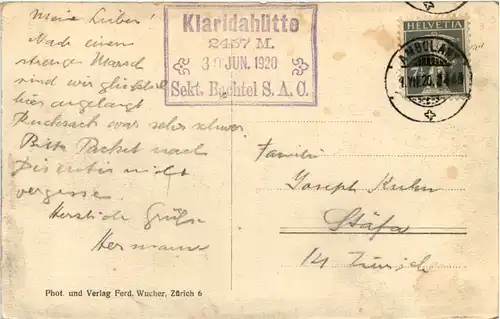 Meine Lieben!
Nach einem
strengen Marsch
sind wir glücklich
hier angelangt
Rucksack war sehr schwer.
Bitte Packet nach
Disentis nicht
vergessen.
Herzliche Grüße
Hermann
Klaridahütte
2457 M.
30 JUN. 1920
Sekt. Bachtel S. A. C.
HELVETIA
AMBULANT
1.VII.20.
Familie
Joseph Kuhn
Stäfa
Zürich
Phot. und Verlag Ferd. Wucher, Zürich 6